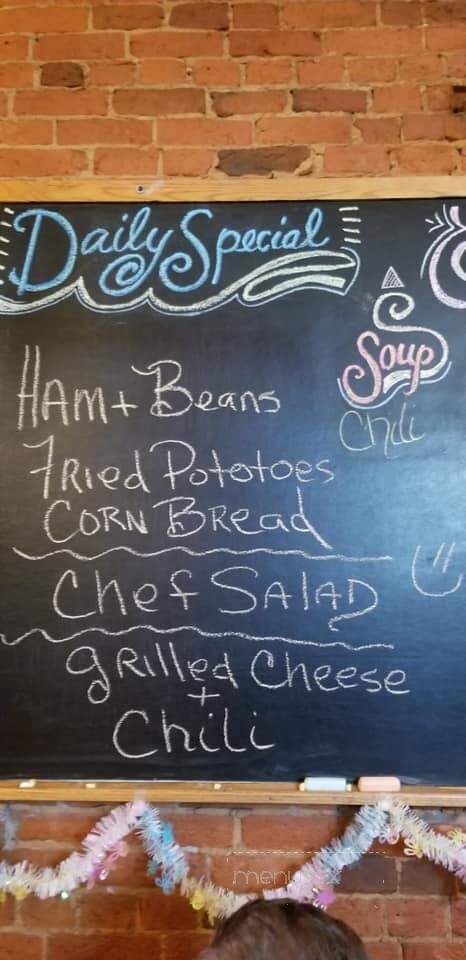 Daily Special
Soup
Chili
HAM + Beans
FRied Pototoes
CORN BRead
Chef SALAD
gRilled Cheese
+
Chili
menu